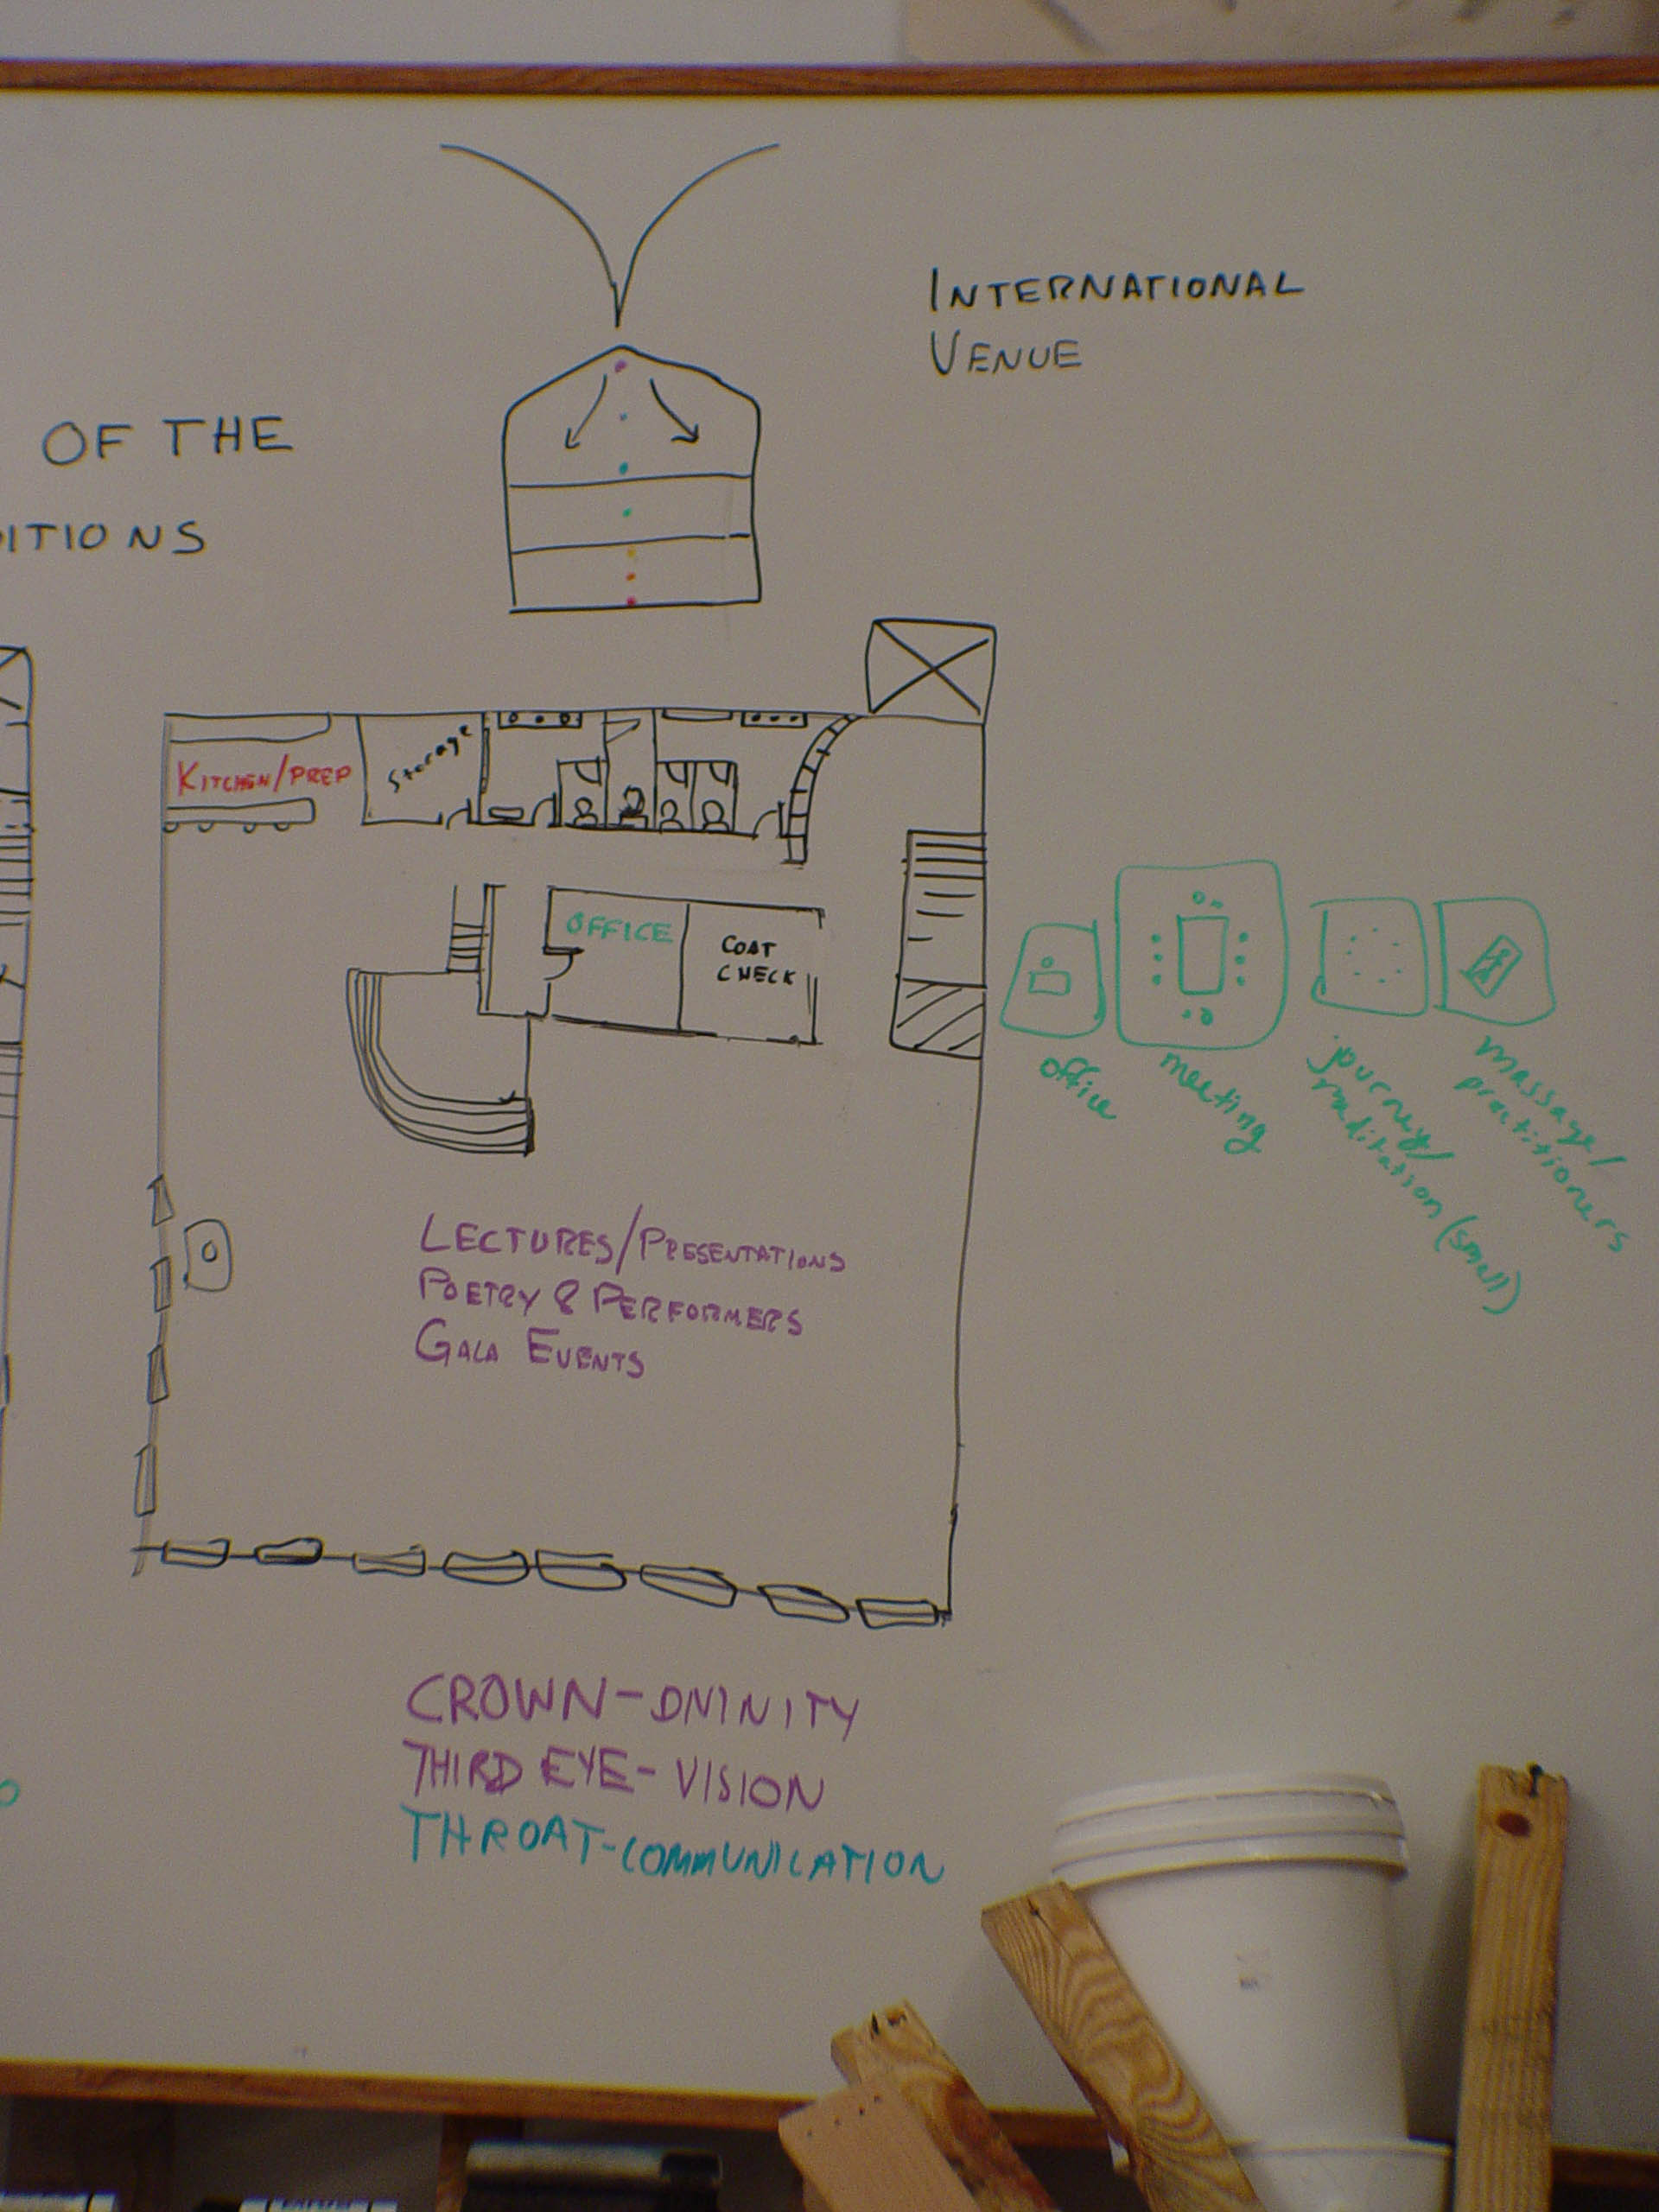 INTERNATIONAL
VENUE
OF THE
ITIONS
KITCHEN/PREP
Storage
OFFICE
COAT
CHECK
office
meeting
journey/
meditation (small)
massage/
practitioners
LECTURES/PRESENTATIONS
POETRY & PERFORMERS
GALA EVENTS
CROWN-DIVINITY
THIRD EYE-VISION
THROAT-COMMUNICATION